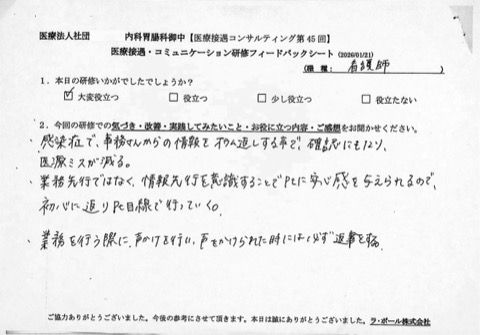 医療法人社団　内科胃腸科御中【医療接遇コンサルティング第45回】
医療接遇・コミュニケーション研修フィードバックシート (2026/01/21)
(職 種: 看護師 )
1．本日の研修いかがでしたでしょうか？
☑ 大変役立つ　□ 役立つ　□ 少し役立つ　□ 役立たない
2．今回の研修での気づき・改善・実践してみたいこと・お役に立つ内容・ご感想をお聞かせください。
・感染症で、事務さんからの情報をオウム返しする事で、確認にもなり、
医療ミスが減る。
・業務先行ではなく、情報先行を意識することでPtに安心感を与えられるので、
初心に返りPt目線で行っていく。
・業務を行う際に、声かけを行い、声をかけられた時には必ず返事をする。
ご協力ありがとうございました。今後の参考にさせて頂きます。本日は誠にありがとうございました。ラ・ポール株式会社